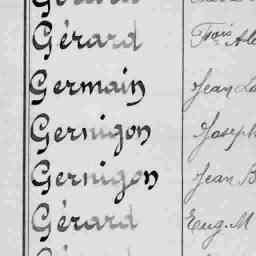 Gérard Frois Ale
Germain Jean
Gernigon Joseph
Gernigon Jean B
Gérard Eug. M